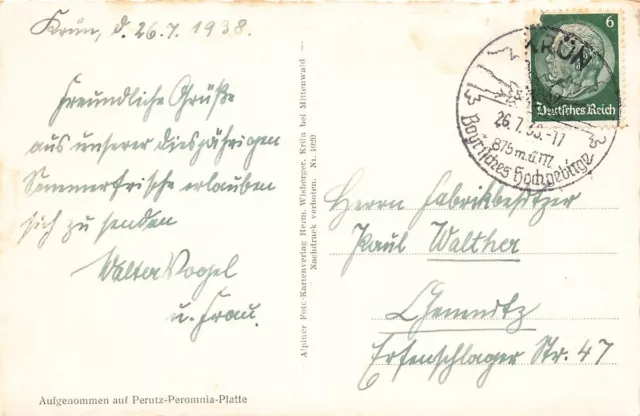 Krün, d. 26.7.1938.
Freundliche Grüße
aus unserer diesjährigen
Sommerfrische erlauben
sich zu senden
Walter Vogel
u. Frau.
Aufgenommen auf Perutz-Peromnia-Platte
Alpiner Foto-Kartenverlag Herm. Wisberger, Krün bei Mittenwald
Nachdruck verboten. Nr. 1020
6
Deutsches Reich
KRÜN
26.7.38.-11
875 m.ü.M.
Bayrisches Hochgebirge
Herrn Fabrikbesitzer
Paul Walther
Chemnitz
Erfenschlager Str. 47